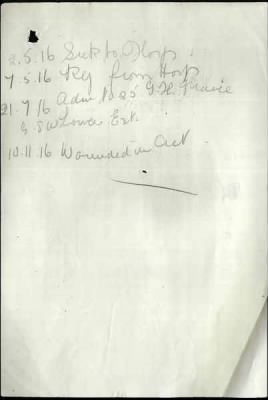 2.5.16 Sick to Hosp
7.5.16 Rej from Hosp
21.7.16 Adm No 25 G.H.
G S W Lower Ext.
10.11.16 Wounded in Act